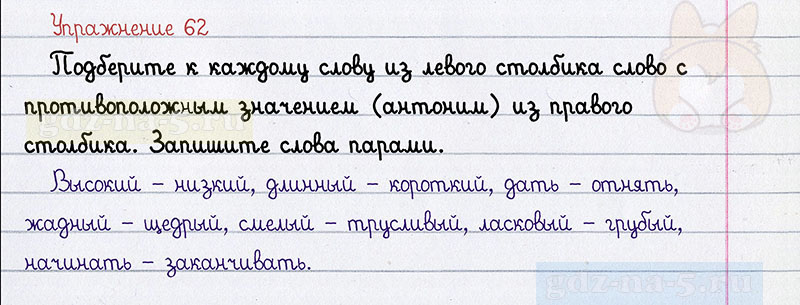 Упражнение 62
Подберите к каждому слову из левого столбика слово с
противоположным значением (антоним) из правого
столбика. Запишите слова парами.
Высокий – низкий, длинный – короткий, дать – отнять,
жадный – щедрый, смелый – трусливый, ласковый – грубый,
начинать – заканчивать.
gdz-na-5.ru
gdz-na-5.ru